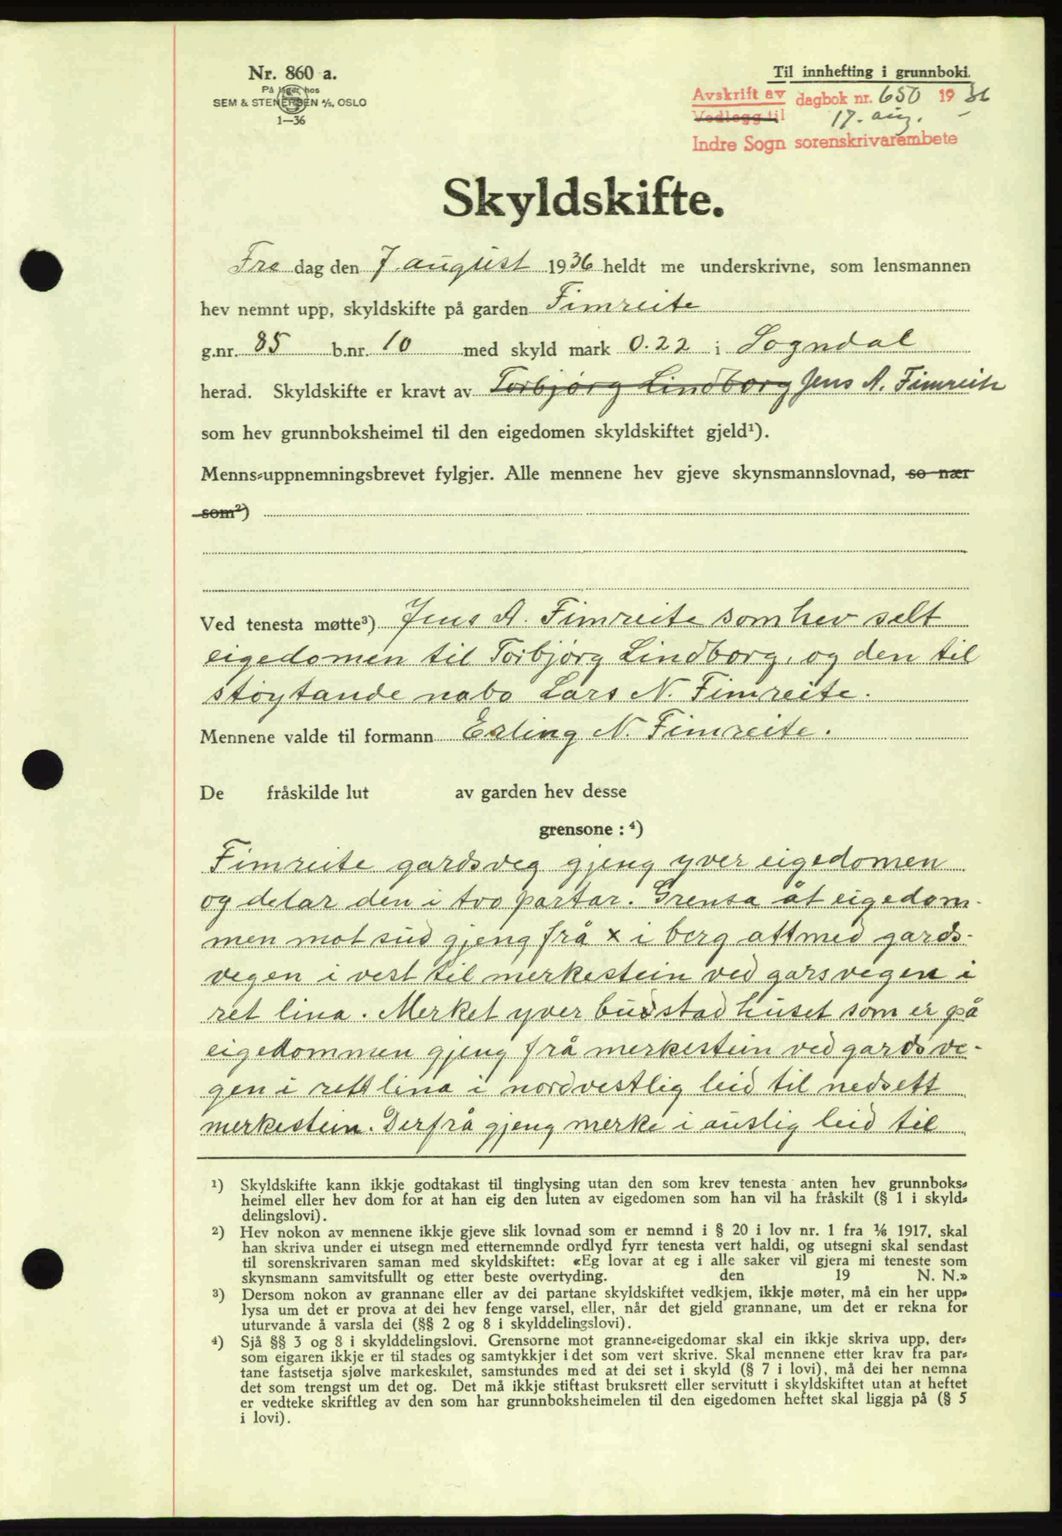 Nr. 860 a.
På lager hos
SEM & STENERSEN A/S, OSLO
1—36
Til innhefting i grunnboki.
Avskrift av dagbok nr. 650 1936
Vedlegg til 17. aug.
Indre Sogn sorenskrivarembete
Skyldskifte.
Fre dag den 7 august 1936 heldt me underskrivne, som lensmannen
hev nemnt upp, skyldskifte på garden Fimreite
g.nr. 85 b.nr. 10 med skyld mark 0.22 i Sogndal
herad. Skyldskifte er kravt av Torbjørg Lindborg Jens A. Fimreite
som hev grunnboksheimel til den eigedomen skyldskiftet gjeld¹).
Menns-uppnemningsbrevet fylgjer. Alle mennene hev gjeve skynsmannslovnad, so nær
som²)
Ved tenesta møtte³) Jens A. Fimreite som hev selt
eigedomen til Torbjørg Lindborg, og den til
støytande nabo Lars N. Fimreite.
Mennene valde til formann Erling N. Fimreite.
De fråskilde lut av garden hev desse
grensone : ⁴)
Fimreite gardsveg gjeng yver eigedomen
og delar den i tvo partar. Grensa åt eigedom-
men mot sud gjeng frå x i berg attmed gards-
vegen i vest til merkestein ved garsvegen i
ret lina. Merket yver budstadhuset som er på
eigedommen gjeng frå merkestein ved gardsve-
gen i rett lina i nordvestlig leid til nedsett
merkestein. Derfrå gjeng merke i auslig leid til
¹) Skyldskifte kann ikkje godtakast til tinglysing utan den som krev tenesta anten hev grunnboks-
heimel eller hev dom for at han eig den luten av eigedomen som han vil ha fråskilt (§ 1 i skyld-
delingslovi).
²) Hev nokon av mennene ikkje gjeve slik lovnad som er nemnd i § 20 i lov nr. 1 fra 1/6 1917, skal
han skriva under ei utsegn med etternemnde ordlyd fyrr tenesta vert haldi, og utsegni skal sendast
til sorenskrivaren saman med skyldskiftet: «Eg lovar at eg i alle saker vil gjera mi teneste som
skynsmann samvitsfullt og etter beste overtyding. den 19 N. N.»
³) Dersom nokon av grannane eller av dei partane skyldskiftet vedkjem, ikkje møter, må ein her upp-
lysa um det er prova at dei hev fenge varsel, eller, når det gjeld grannane, um det er rekna for
uturvande å varsla dei (§§ 2 og 8 i skylddelingslovi).
⁴) Sjå §§ 3 og 8 i skylddelingslovi. Grensorne mot granne-eigedomar skal ein ikkje skriva upp, der-
som eigaren ikkje er til stades og samtykkjer i det som vert skrive. Skal mennene etter krav fra par-
tane fastsetja sjølve markeskilet, samstundes med at dei set i skyld (§ 7 i lovi), må dei her nemna
det som trengst um det og. Det må ikkje stiftast bruksrett eller servitutt i skyldskiftet utan at heftet
er vedteke skriftleg av den som har grunnboksheimelen til den eigedomen heftet skal liggja på (§ 5
i lovi).